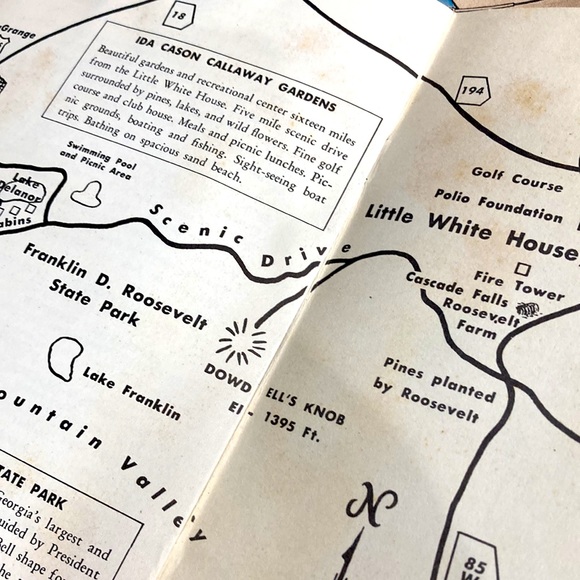 Grange
18
IDA CASON CALLAWAY GARDENS
Beautiful gardens and recreational center sixteen miles
from the Little White House. Five mile scenic drive
surrounded by pines, lakes, and wild flowers. Fine golf
course and club house. Meals and picnic lunches. Pic-
nic grounds, boating and fishing. Sight-seeing boat
trips. Bathing on spacious sand beach.
Swimming Pool
and Picnic Area
Lake
Delanor
abins
Scenic Drive
Franklin D. Roosevelt
State Park
Lake Franklin
DOWDELL'S KNOB
El - 1395 Ft.
ountain Valley
TATE PARK
Georgia's largest and
uided by President
Bell shape fo
194
Golf Course
Polio Foundation
Little White House
Fire Tower
Cascade Falls
Roosevelt
Farm
Pines planted
by Roosevelt
N
85
W